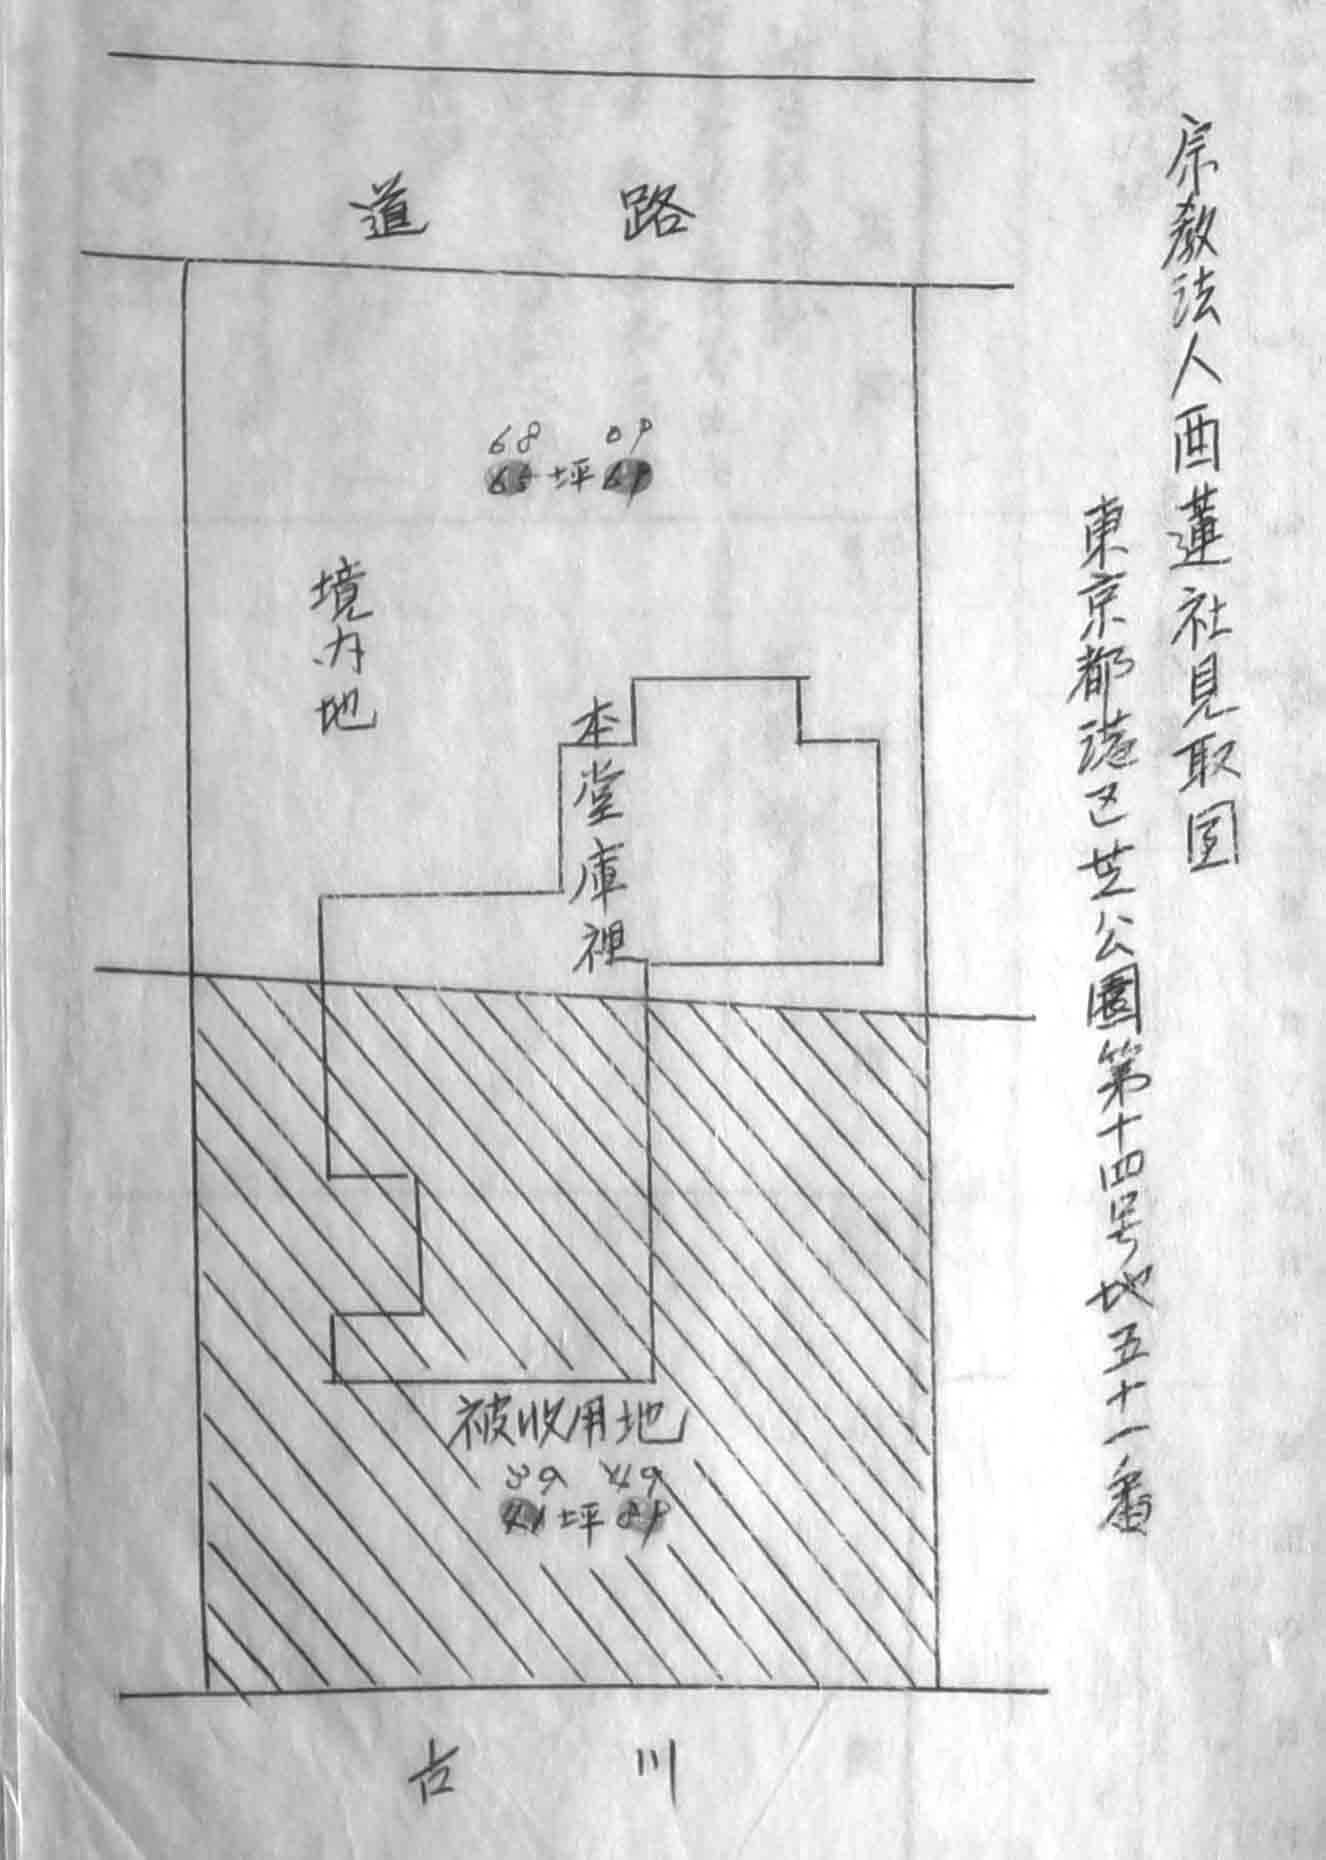 宗教法人西蓮社見取図
東京都港区芝公園第十四号地五十一番
道路
68 09
坪
境内地
本堂庫裡
被収用地
39 49
坪
古川